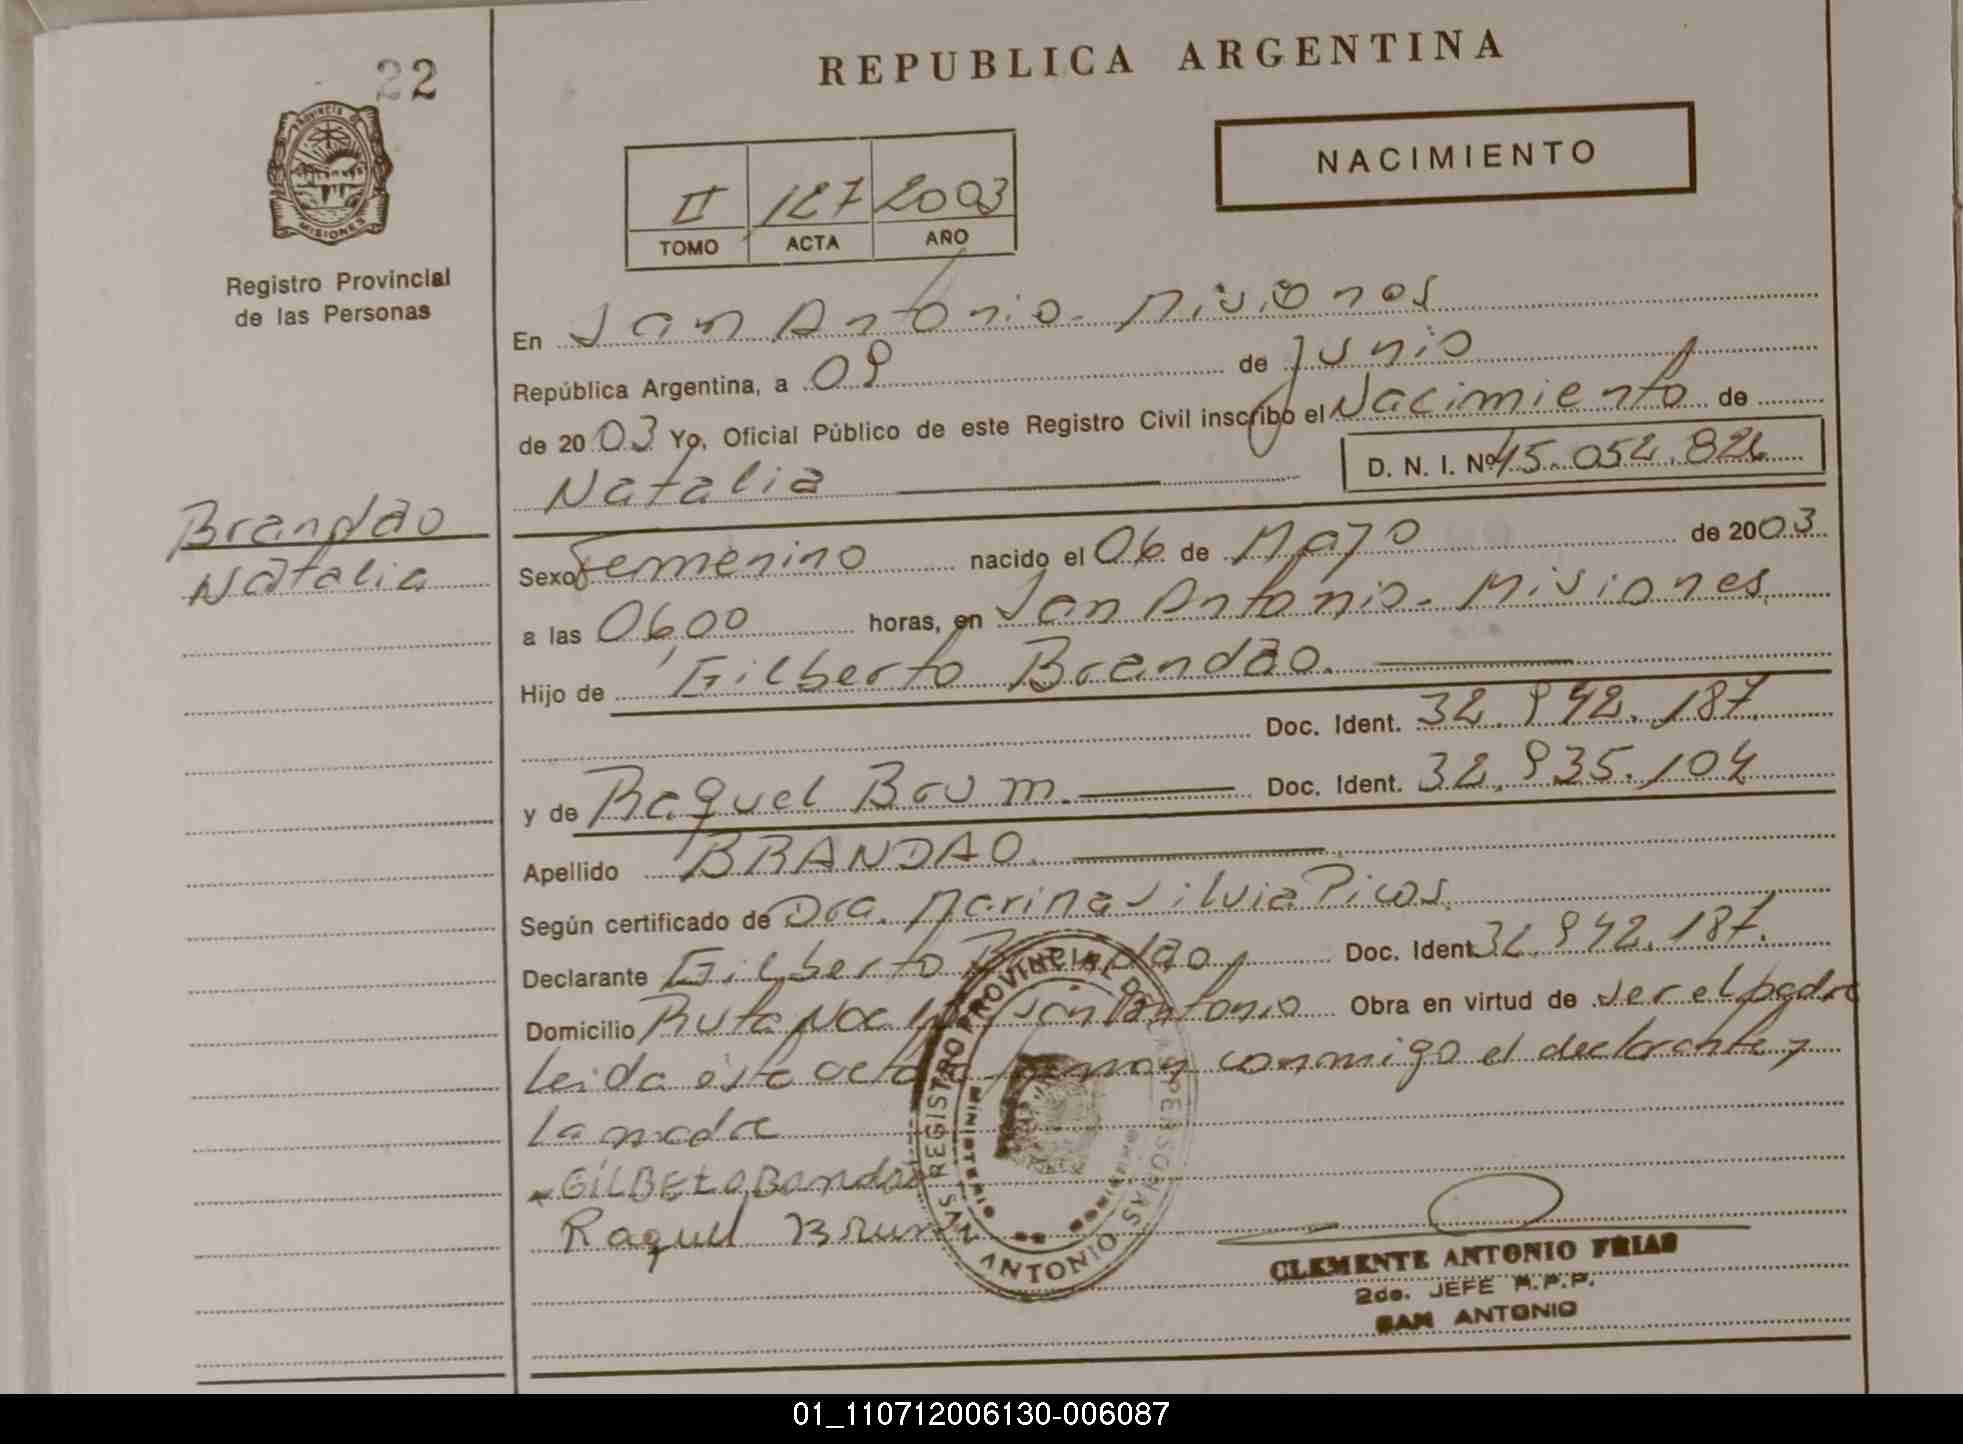 22
REPUBLICA ARGENTINA
NACIMIENTO
II 127 2003
TOMO ACTA AÑO
PROVINCIA DE
MISIONES
Registro Provincial
de las Personas
En San Antonio - Misiones
República Argentina, a 09 de Junio
de 2003 Yo, Oficial Público de este Registro Civil inscribo el Nacimiento de
Natalia D. N. I. Nº 45.052.826
Brandao
Natalia
Sexo Femenino nacido el 06 de Mayo de 2003
a las 06,00 horas, en San Antonio - Misiones
Hijo de Gilberto Brandao.
Doc. Ident. 32.942.187
y de Raquel Brum. Doc. Ident. 32.935.104
Apellido BRANDAO.
Según certificado de Dra. Marina Silvia Picos.
Declarante Gilberto Brandao Doc. Ident. 32.942.187.
Domicilio Ruta Nac San Antonio Obra en virtud de ser el padre
Leida esta acta firman conmigo el declarante y
La madre
Raquel Brum
REGISTRO PROVINCIAL DE LAS PERSONAS
MINISTERIO
SAN ANTONIO
CLEMENTE ANTONIO FRIAS
2do. JEFE R.P.P.
SAN ANTONIO
01_110712006130-006087